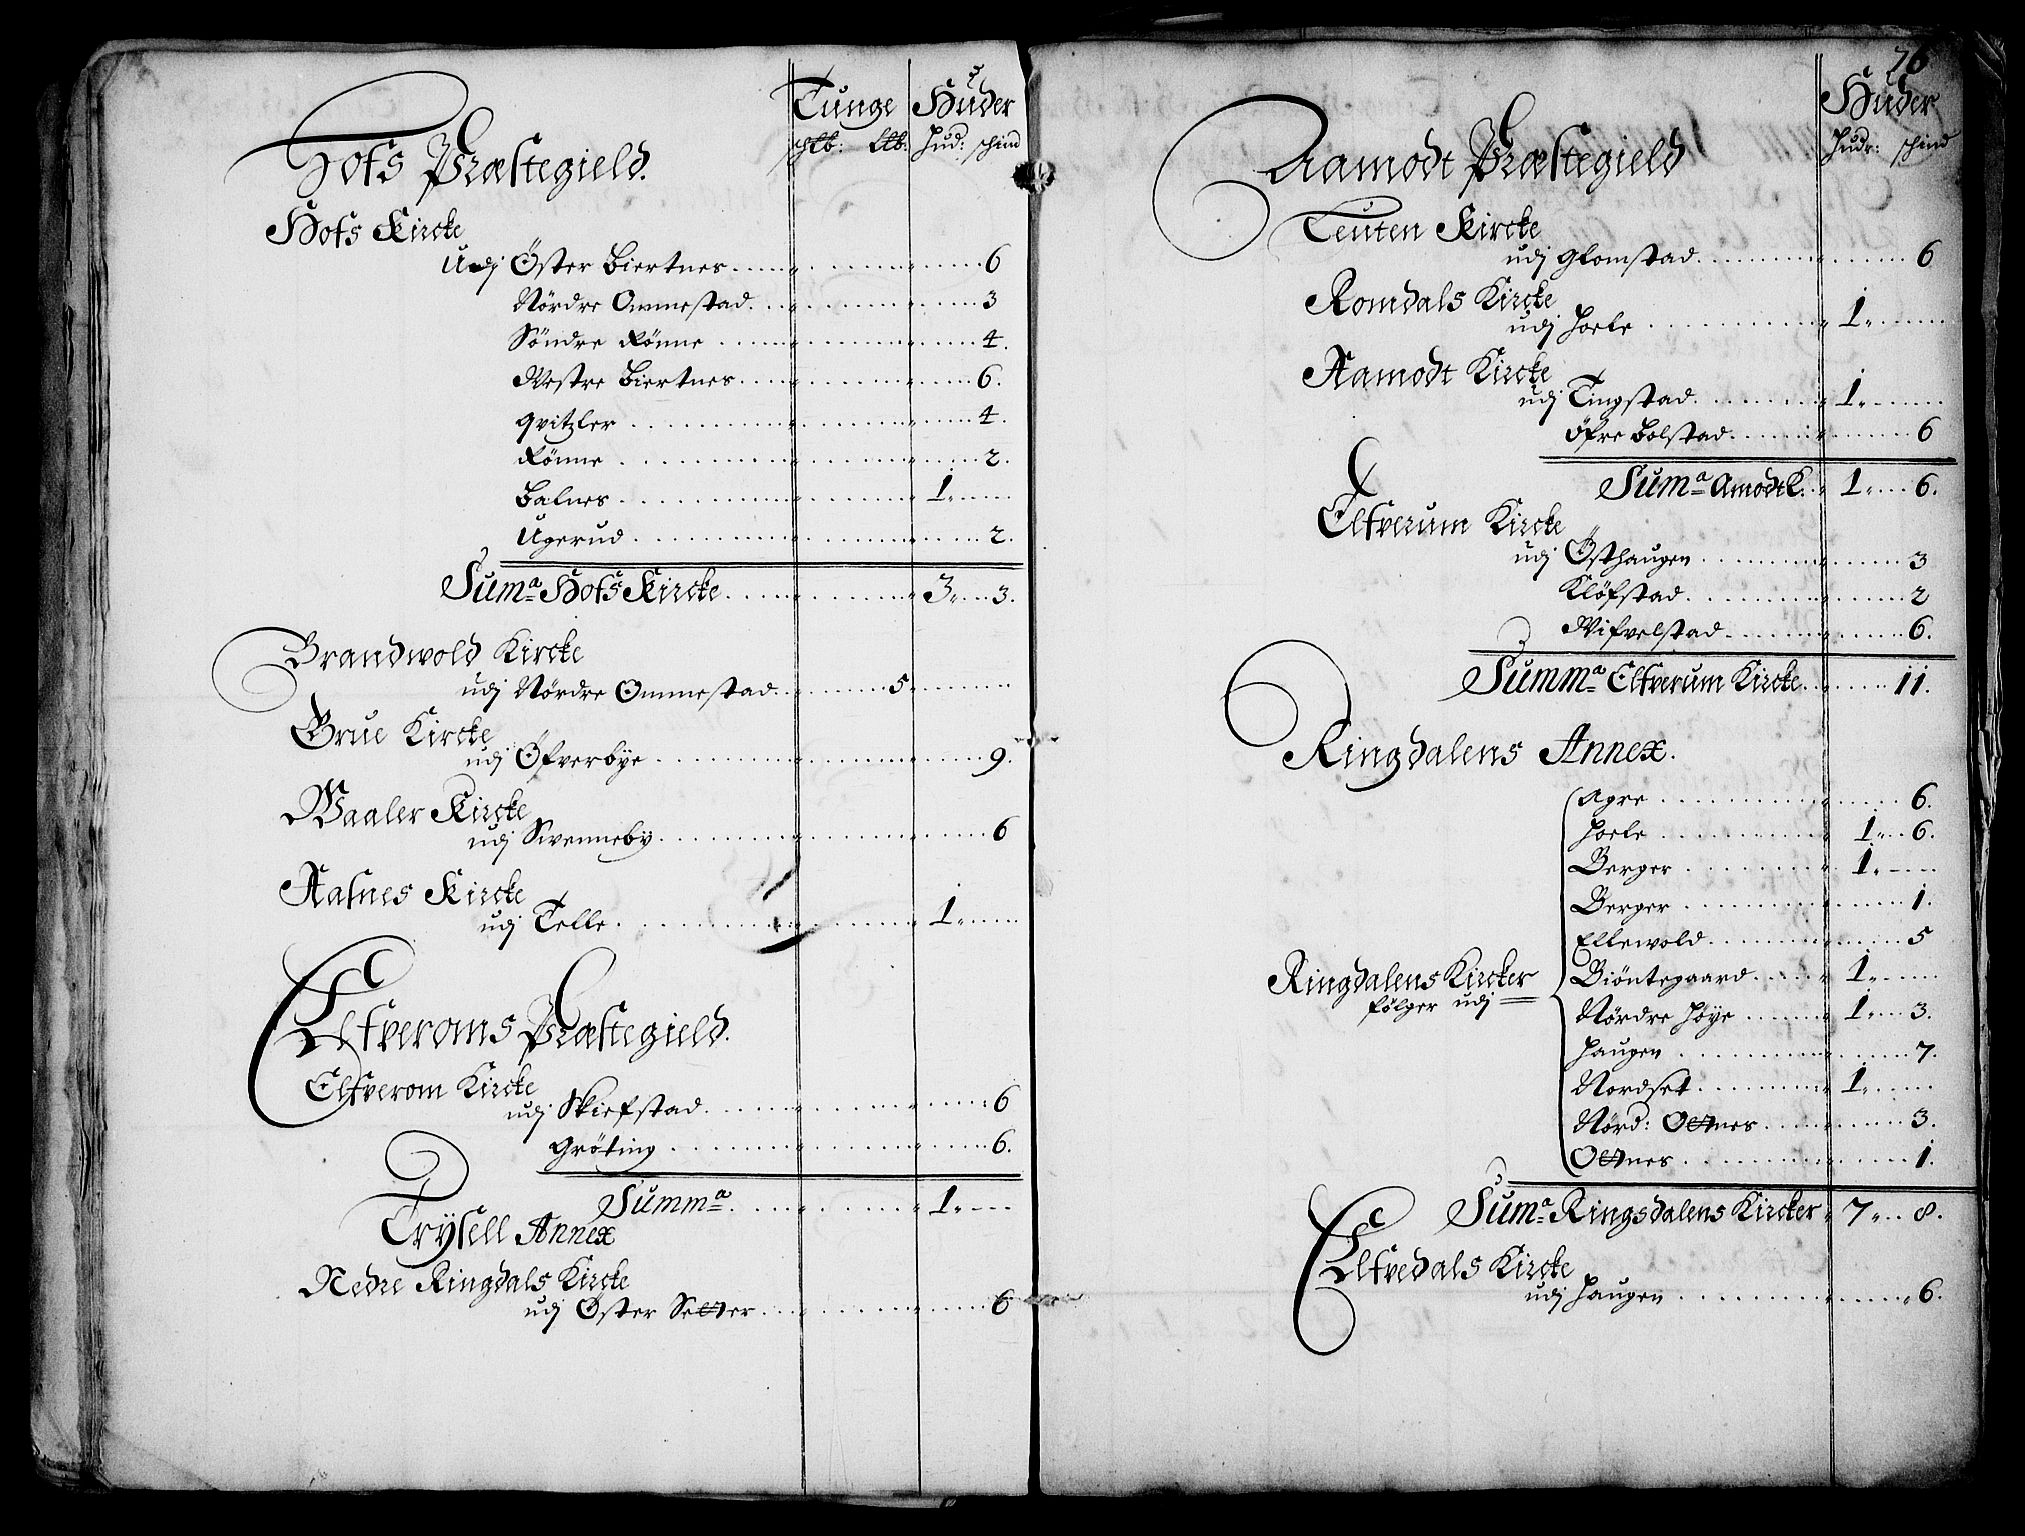 Tunge Huder
schtb: Ltb: hud: schind
Hofs Præstegield.
Hofs Kircke
Udj Öster Biertnes 6
Nördre Ommestad 3
Söndre Rönne 4.
Westre Biertnes 6.
Qvitzler 4.
Rönne 2.
Balnes 1.
Ugerud 2.
Sum̃a Hofs Kircke 3. 3.
Brandwold Kircke
udj Nördre Ommestad 5
Grue Kircke
udj Öfverbÿe 9.
Waaler Kircke
udj Swenneby 6
Aasnes Kircke
udj Telle 1.
Elfveroms Præstegield.
Elfverom Kircke
udj Skiefstad 6
Gröting 6.
Summa 1.
Trÿsell Annex
Nedre Ringdals Kircke
udj Öster Setter 6
76
Huder
hudr: schind
Aamodt Præstegield
Teuten Kircke
udj Glomstad 6
Romdals Kircke
udj Hoele 1.
Aamodt Kircke
udj Tingstad 1.
Öfre Bolstad 6
Suma Amodt K. 1. 6.
Elfverum Kircke
udj Östhaugen 3
Klöfstad 2
Wifvelstad 6.
Summa Elfverum Kircke 11.
Ringdalens Annex.
Agre 6.
Hoele 1. 6.
Berger 1.
Berger 1.
Ellewold 5
Ringdalens Kircker
fölger udj
Biöntegaard 1.
Nördre Höÿe 1. 3.
Haugen 7.
Nordset 1.
Nörd: Ottnes 3.
Ottnes 1.
Suma Ringsdalens Kircker 7. 8.
Elfvedals Kircke
udj Haugen 6.